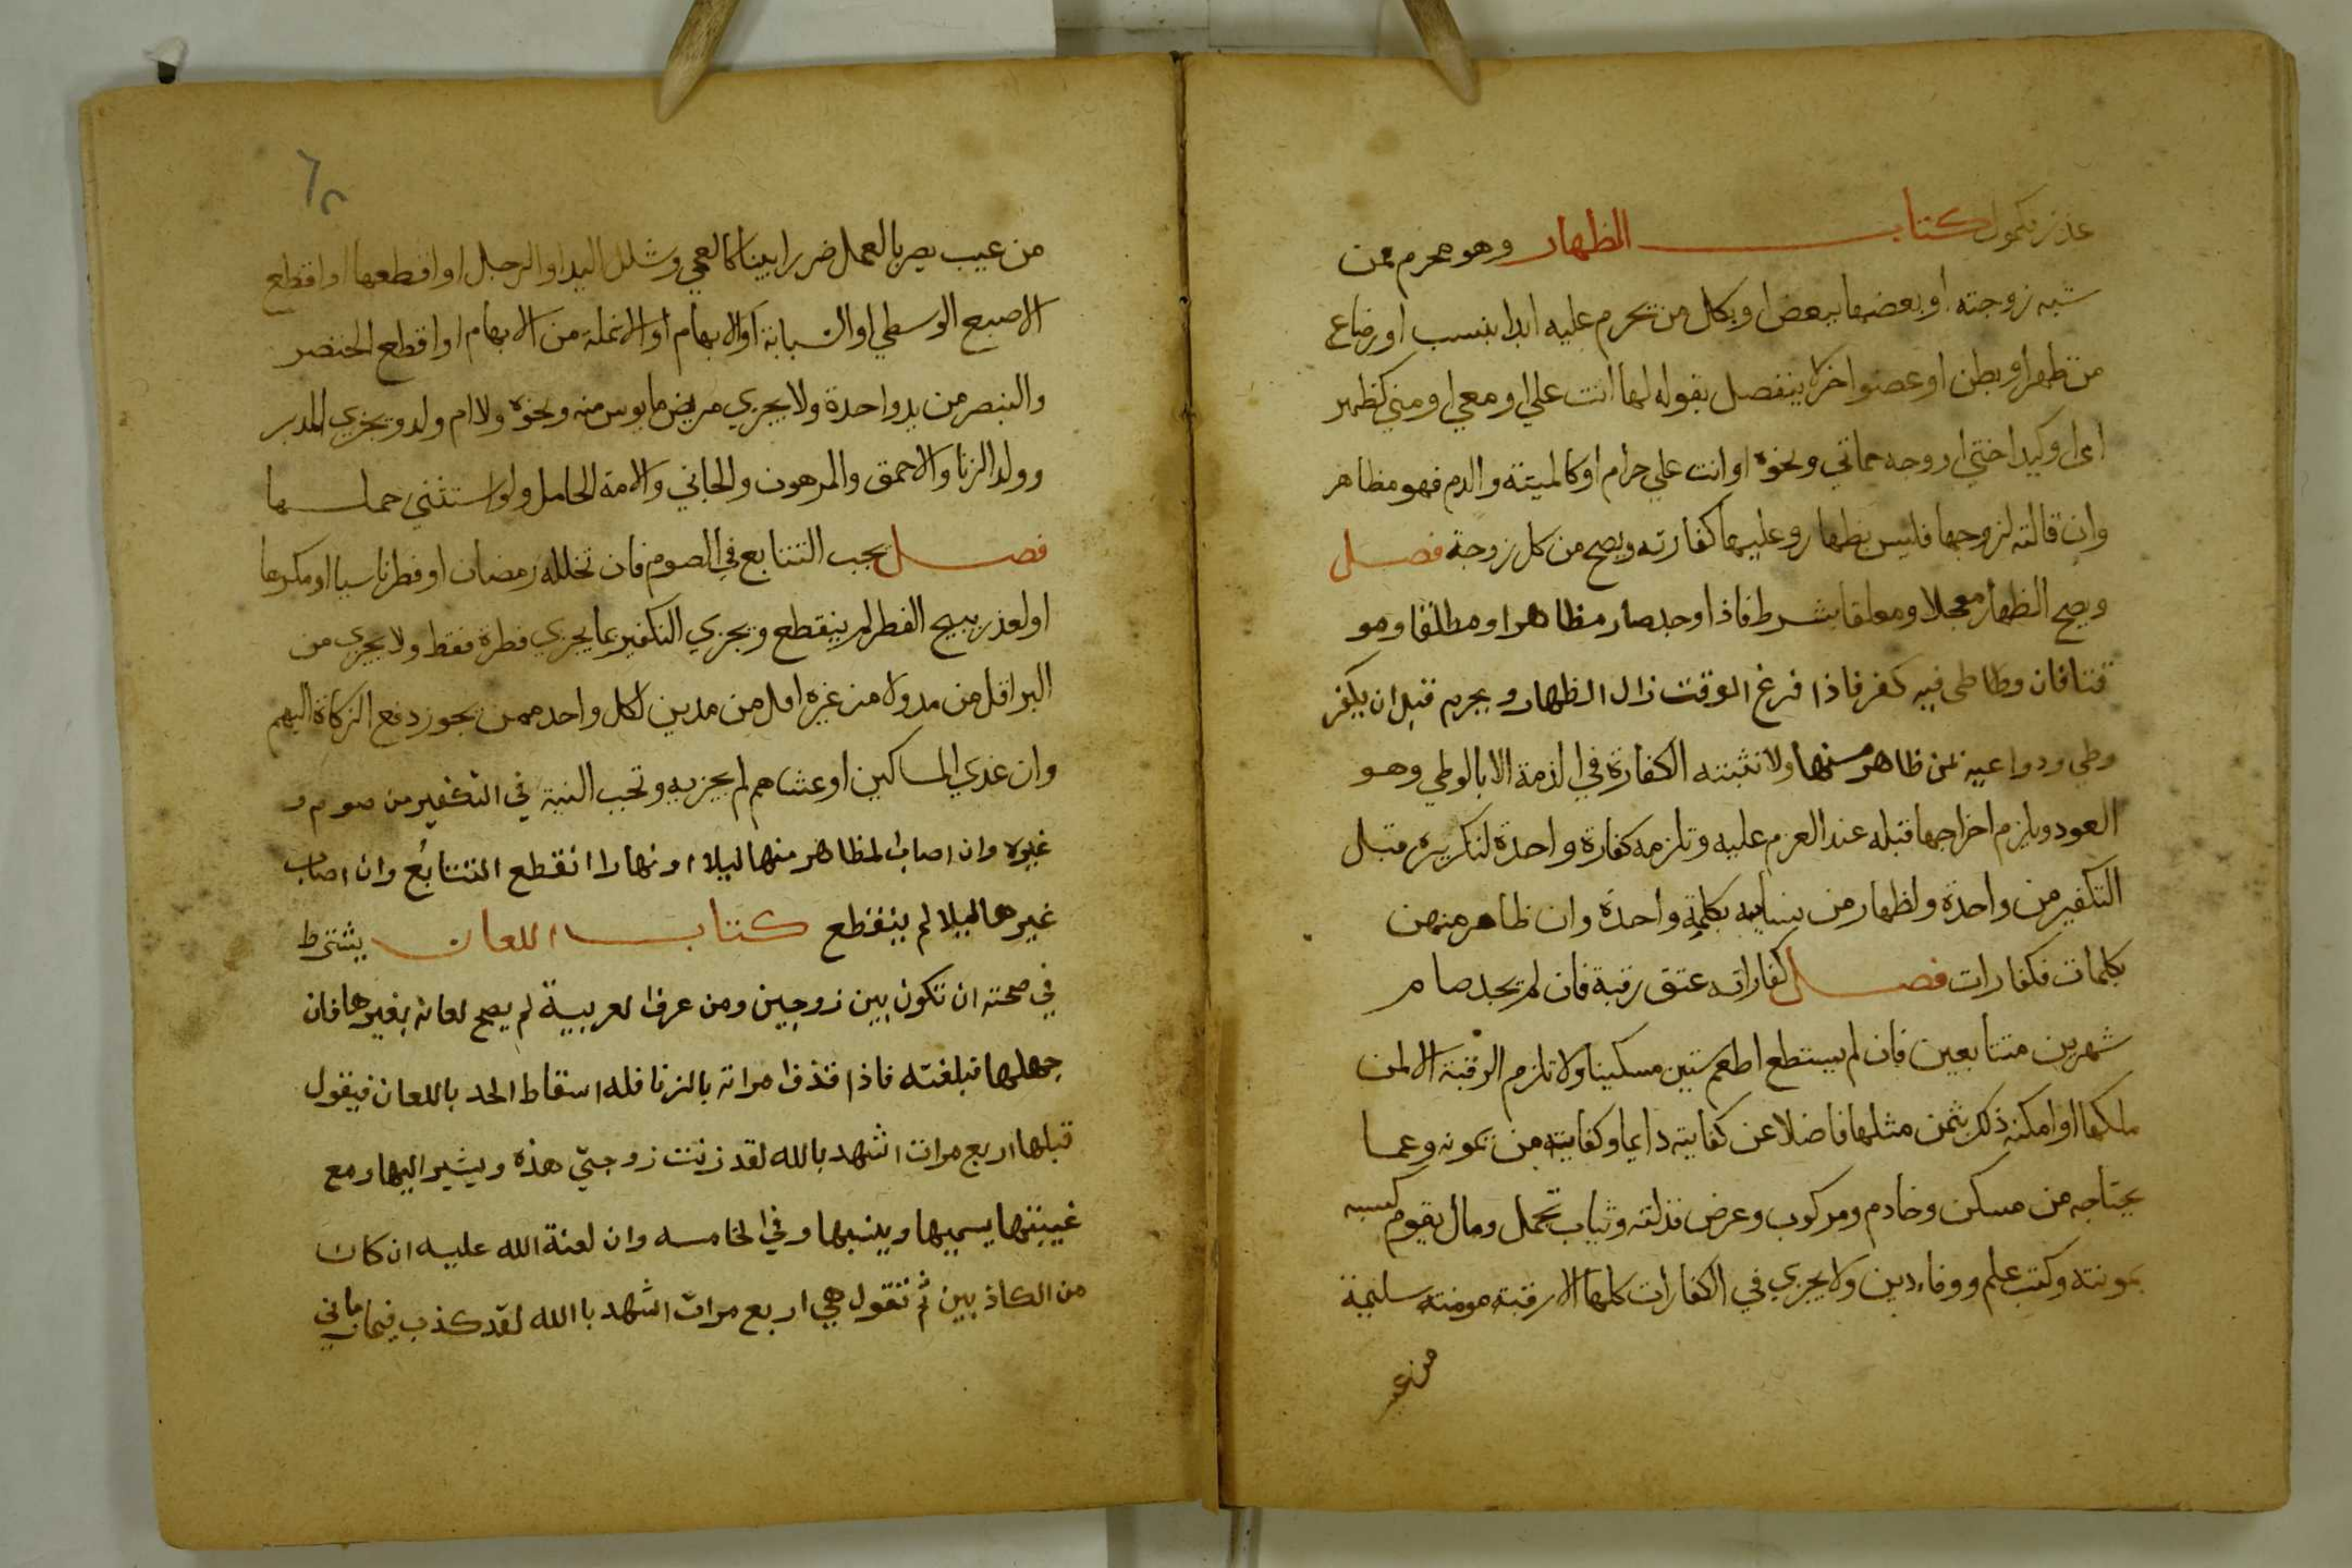 عذر فكمول كتاب الظهار وهو محرم فمن
شبه زوجته او بعضها ببعض او بكل من تحرم عليه ابدا بنسب او رضاع
من ظهر او بطن او عضو اخر لا ينفصل بقوله لها انت علي او معي او مني كظهر
امي او كيد اختي او وجه حماتي ونحوه او انت علي حرام او كالميتة والدم فهو مظاهر
وان قالته لزوجها فليس بظهار وعليها كفارته ويصح من كل زوجة فصل
ويصح الظهار معجلا ومعلقا بشرط فاذا وجد صار مظاهرا ومطلقا ومو
قتا فان وطا طى فيه كفر فاذا فرغ الوقت زال الظهار ويحرم قبل ان يكفر
وطي ودواعيه ممن ظاهر منها ولا تثبته الكفارة في الذمة الا بالوطي وهو
العود ويلزم اخراجها قبله عند العزم عليه وتلزمه كفارة واحدة لتكريره قبل
التكفير من واحدة ولظهار من نسايه بكلمة واحدة وان ظاهر منهن
بكلمات فكفارات فصل كفاراته عتق رقبة فان لم يجد صام
شهرين متتابعين فان لم يستطع اطعم ستين مسكينا ولا تلزم الرقبة الا لمن
ملكها او امكنه ذلك بثمن مثلها فاضلا عن كفايته دايما وكفايته من تمونه وعما
يحتاجه من مسكن وخادم ومركوب وعرض فذلته وثياب تحمل ومال يقوم كسبه
بمونته وكتب علم ووفاء دين ولا يجزي في الكفارات كلها الا رقبة مومنة سليمة
من عيب
٦٢
من عيب يضر بالعمل ضررا بينا كالعمي وشلل اليد او الرجل او اقطعها او اقطع
الاصبع الوسطي او السبابة او الابهام او الانملة من الابهام او اقطع الخنصر
والبنصر من يد واحدة ولا يجزي مريض مايوس منه ونحوه ولا ام ولد ويجزي المدبر
وولد الزنا والاحمق والمرهون والجاني والامة الحامل ولو استثني حملها
فصل يجب التتابع في الصوم فان تخلله رمضان او فطر ناسيا او مكرها
او لعذر يبيح الفطر لم ينقطع ويجزي التكفير بما يجزي فطرة فقط ولا يجزي من
البر اقل من مد ولا من غيره اقل من مدين لكل واحد ممن يجوز دفع الزكاة اليهم
وان غدي المساكين او عشاهم لم يجزيه وتجب النية في التكفير من صوم و
غيره وان اصاب المظاهر منها ليلا او نهارا انقطع التتابع وان اصاب
غيرها ليلا لم ينقطع كتاب اللعان يشترط
في صحته ان تكون بين زوجين ومن عرف العربية لم يصح لعانه بغيرها فان
جهلها فبلغته فاذا قذف امراته بالزنا فله اسقاط الحد باللعان فيقول
قبلها اربع مرات اشهد بالله لقد زنت زوجتي هذه ويشير اليها ومع
غيبتها يسميها وينسبها وفي الخامسه وان لعنة الله عليه ان كان
من الكاذبين ثم تقول هي اربع مرات اشهد باالله لقد كذب فيما رماني